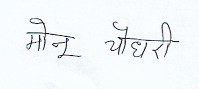 मोनू चौधरी